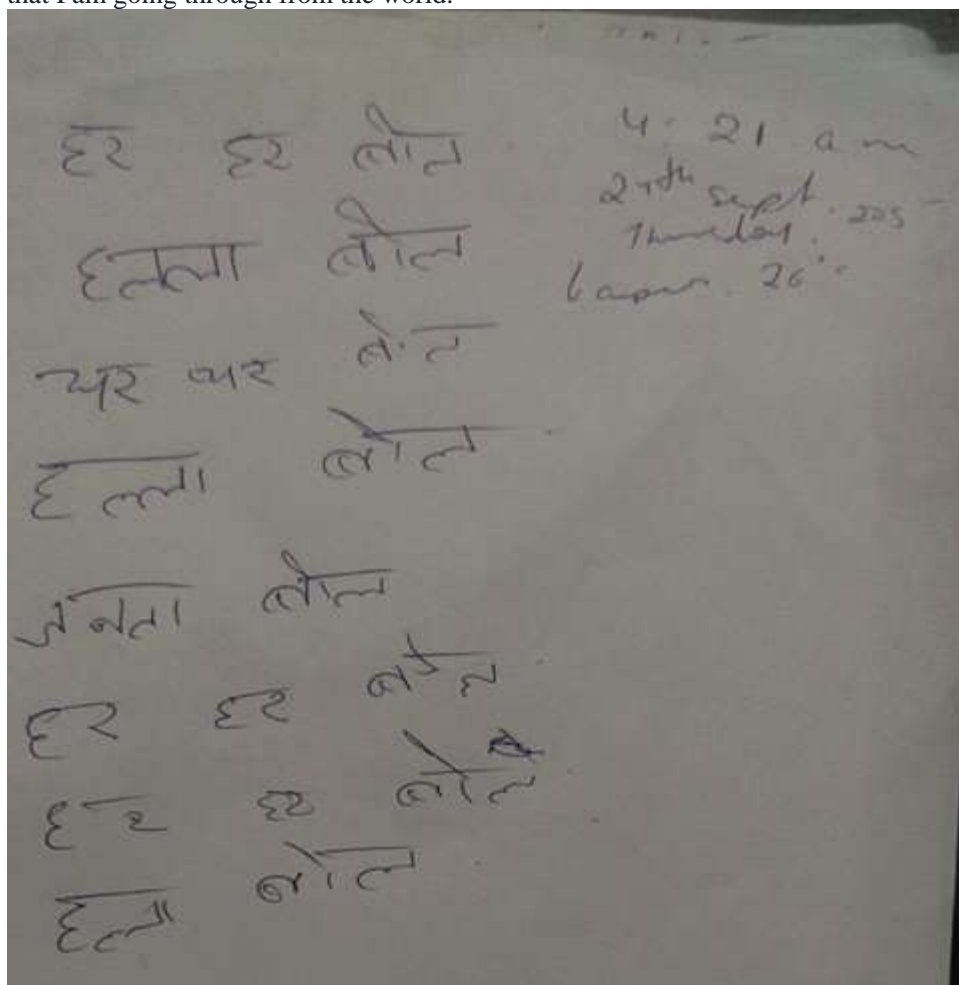 that I am going through from the world.
हर हर बोल
हल्ला बोल
घर घर बोल
हल्ला बोल
जनता बोल
हर हर बोल
हर हर बोल
हल्ला बोल
4.21 a.m
Sept.
Thursday.
26